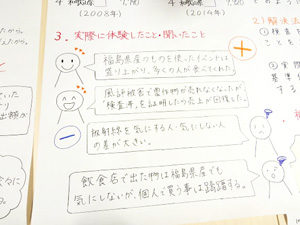 (2008年)
(2014年)
3. 実際に体験したこと・聞いたこと
福島県産のものを使ったイベントは
盛り上がり、多くの人が食べてくれた
風評被害で農作物が売れなくなったが、
検査率を証明したら売上が回復した。
放射線を気にする人・気にしない人
の差が大きい。
飲食店で出た物は福島県産でも
気にしないが、個人で買う事は躊躇する。